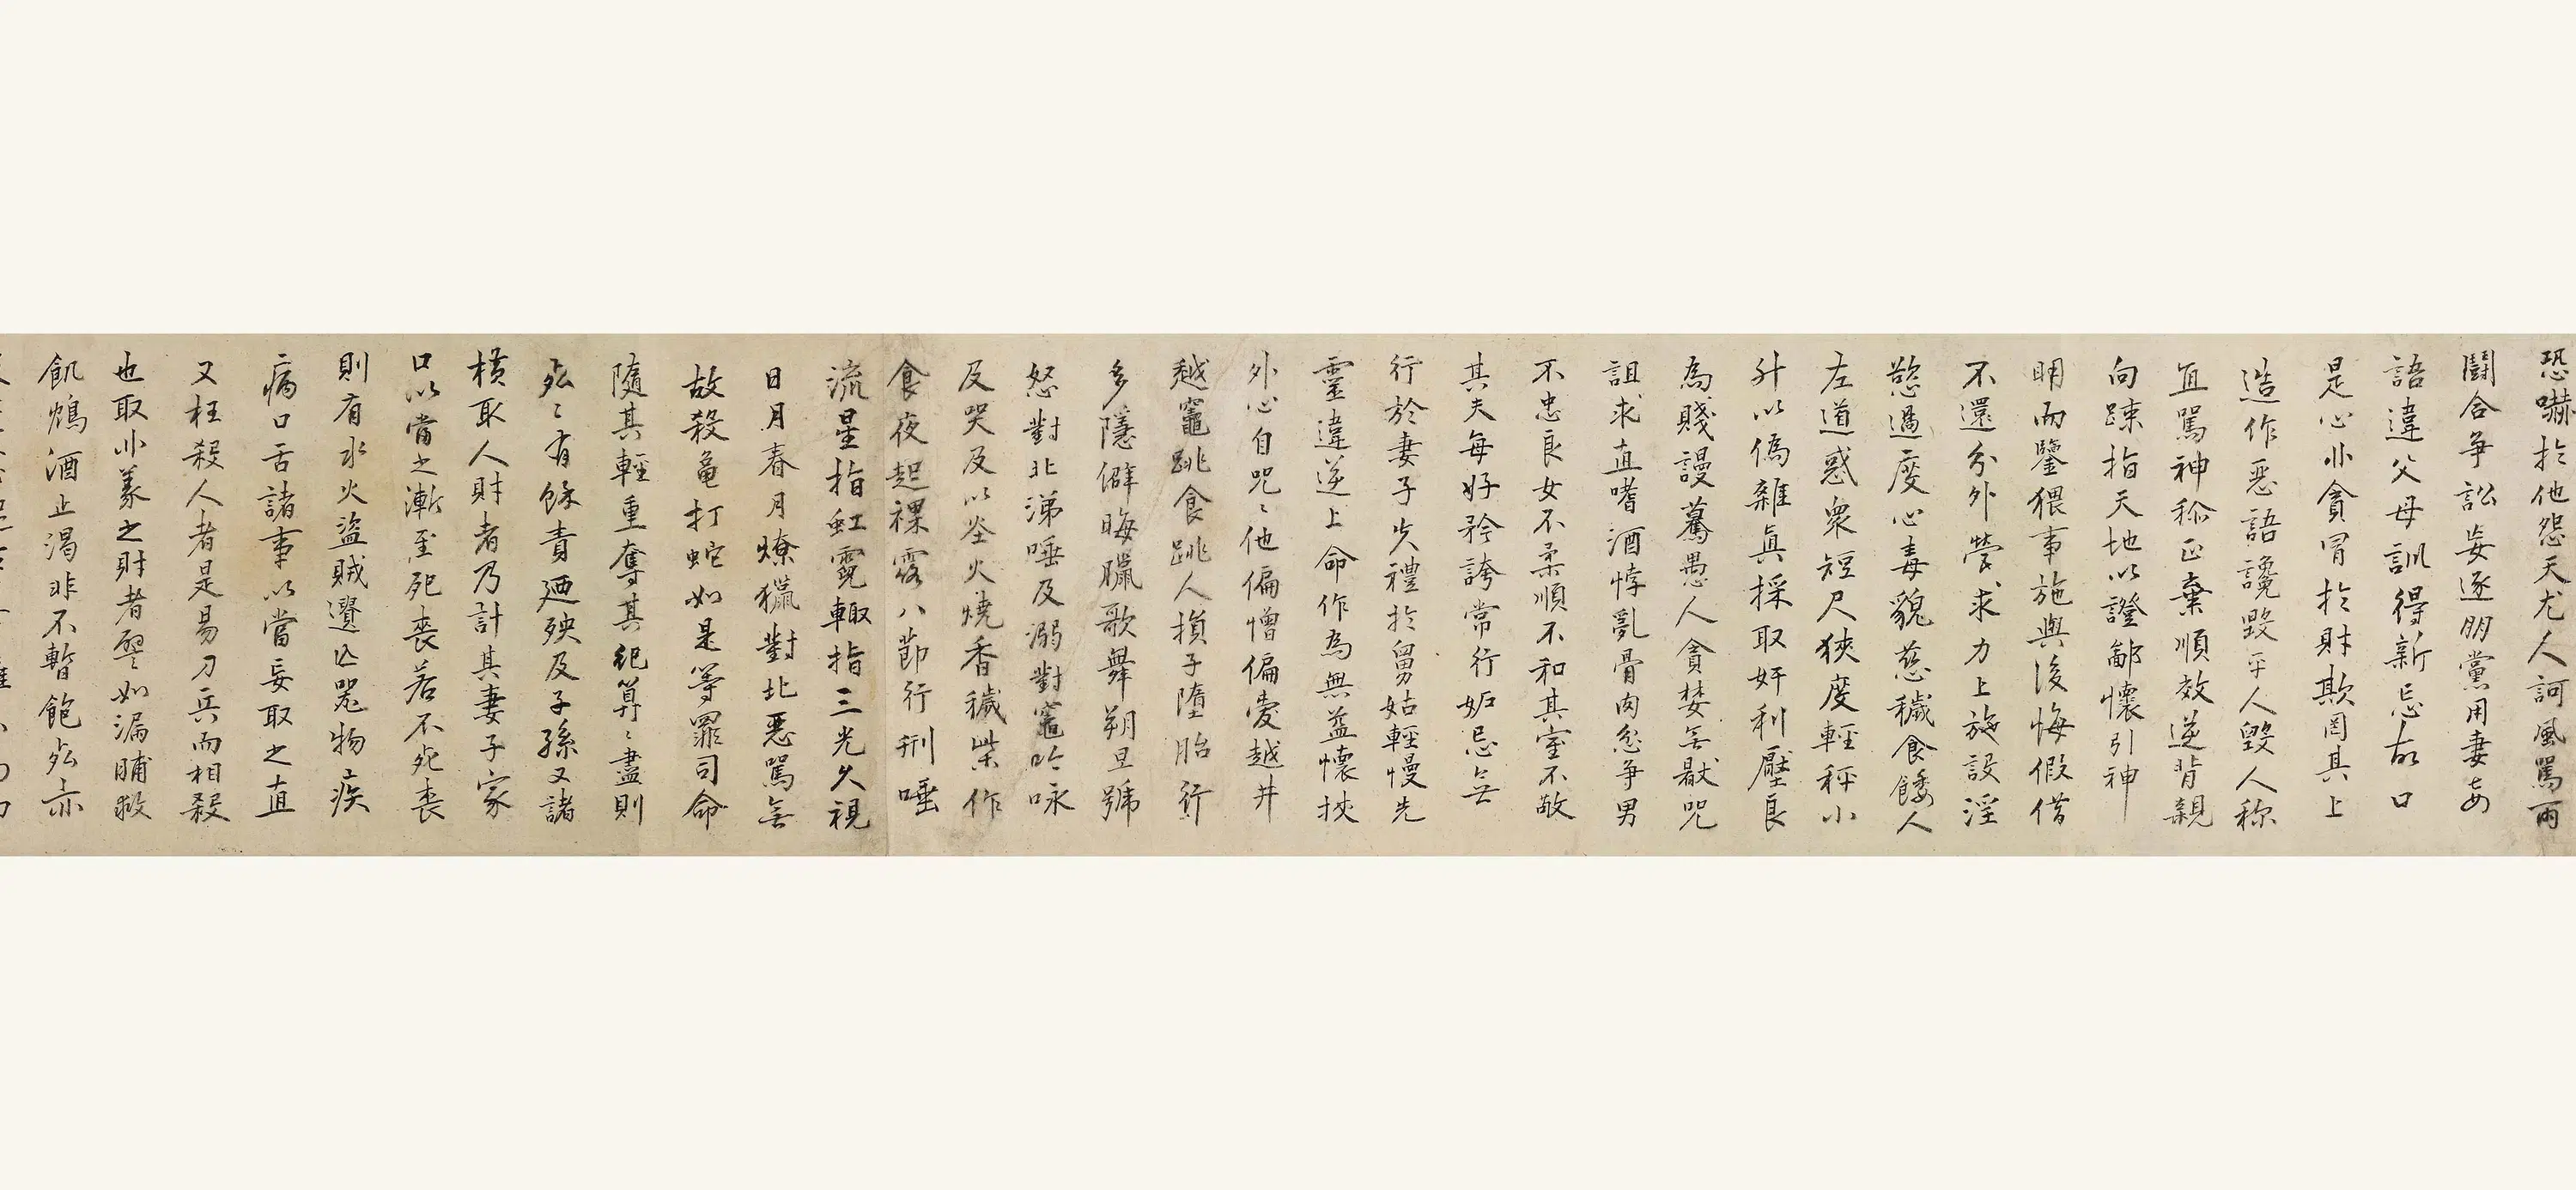 恐嚇於他怨天尤人訶風罵雨
鬪合爭訟妄逐朋黨用妻妾
語違父母訓得新忘故口
是心非貪冒於財欺罔其上
造作惡語讒毀平人毀人称
直罵神称正棄順效逆背親
向踈指天地以證鄙懷引神
明而鑒猥事施與後悔假借
不還分外營求力上施設淫
慾過度心毒貌慈穢食餧人
左道惑衆短尺狹度輕秤小
升以偽雜眞採取奸利壓良
為賤謾驀愚人貪婪無厭咒
詛求直嗜酒悖亂骨肉忿爭男
不忠良女不柔順不和其室不敬
其夫每好矜誇常行妬忌無
行於妻子失禮於舅姑輕慢先
靈違逆上命作為無益懷挾
外心自咒咒他偏憎偏愛越井
越竈跳食跳人損子墮胎行
多隱僻晦臘歌舞朔旦號
怒對北涕唾及溺對竈吟咏
及哭及以竈火燒香穢柴作
食夜起裸露八節行刑唾
流星指虹霓輙指三光久視
日月春月燎獵對北惡罵無
故殺龜打蛇如是等罪司命
隨其輕重奪其紀算算盡則
死死有餘責廼殃及子孫又諸
橫取人財者乃計其妻子家
口以當之漸至死喪若不死喪
則有水火盜賊遺亡器物疾
病口舌諸事以當妄取之直
又枉殺人者是易刀兵而相殺
也取非義之財者譬如漏脯救
飢鴆酒止渴非不暫飽死亦